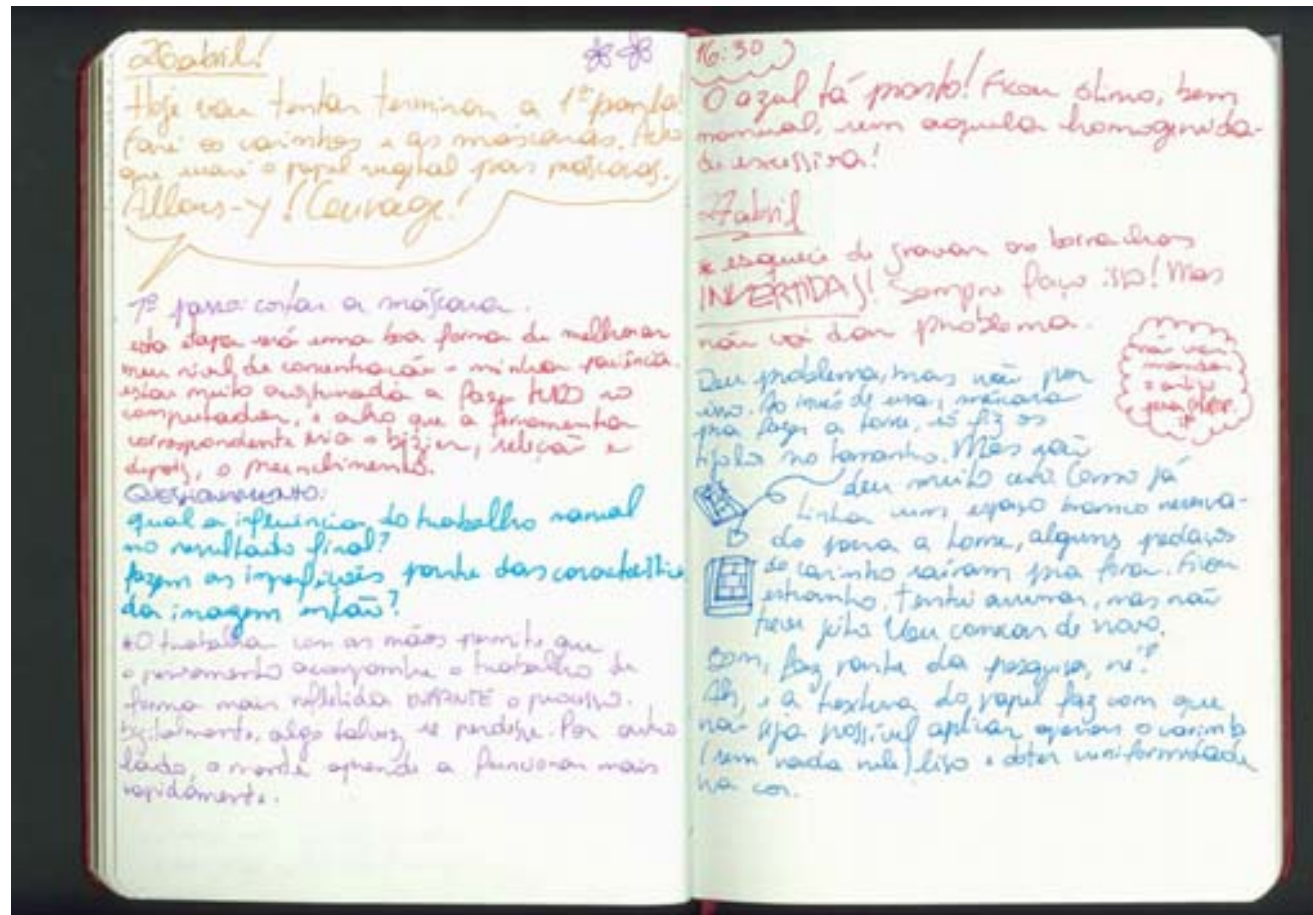 26 abril!
Hoje vou tentar terminar a 1ª prancha!
Farei os carimbos e as máscaras. Acho
que usarei o papel vegetal pras máscaras.
Allons-y! Courage!
1º passo: cortar a máscara.
esta etapa será uma boa forma de melhorar
meu nível de concentração e minha paciência.
estou muito acostumada a fazer TUDO no
computador, e acho que a ferramenta
correspondente seria o bézier, seleção e
depois, o preenchimento.
QUESTIONAMENTO:
qual a influência do trabalho manual
no resultado final?
fazem as imperfeições parte das características
da imagem então?
*O trabalho com as mãos permite que
o pensamento acompanhe o trabalho de
forma mais refletida DURANTE o processo.
Digitalmente, algo talvez se perdesse. Por outro
lado, a mente aprende a funcionar mais
rapidamente.
16:30
O azul tá pronto! Ficou ótimo, bem
manual, sem aquela homogeneida-
de excessiva!
27 abril
* esqueci de gravar as borrachas
INVERTIDAS! Sempre faço isso! Mas
não vai dar problema.
não vou
mandar
o artigo
pra
Deu problema, mas não por
isso. Ao invés de usar máscara
pra fazer a torre, só fiz os
tijolos no tamanho. Mas não
deu muito certo. Como já
tinha um espaço branco reserva-
do para a torre, alguns pedaços
do carimbo saíram pra fora. Ficou
estranho. Tentei arrumar, mas não
teve jeito. Vou começar de novo.
Bom, faz parte da pesquisa, né?
Ah, e a textura do papel faz com que
não seja possível aplicar apenas o carimbo
(sem nada nele) liso e obter uniformidade
na cor.